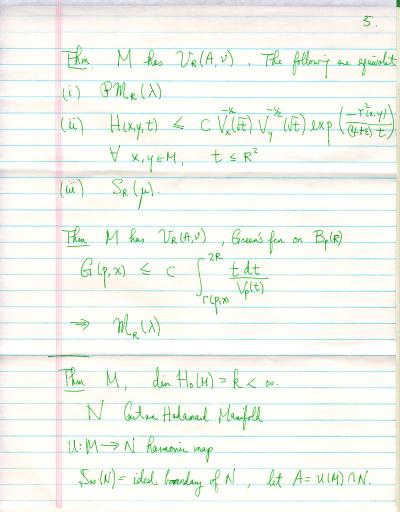 5.
Thm. M has V_R(A,ν). The following are equivalent
(i) PM_R(λ)
(ii) H(x,y,t) ≤ C V_x^{-½}(√t) V_y^{-½}(√t) exp(-r²(x,y)/(4+ε)t)
∀ x,y∈M, t ≤ R²
(iii) S_R(μ).
Thm M has V_R(A,ν), Green's fcn on B_p(R)
G(p,x) ≤ C ∫_{r(p,x)}^{2R} t dt / V_p(t)
⇒ M_R(λ)
Thm M, dim H_0(M) = k < ∞.
N Cartan Hadamard Manifold
u: M → N harmonic map
S_∞(N) = ideal boundary of N, let A = u(M) ∩ N.